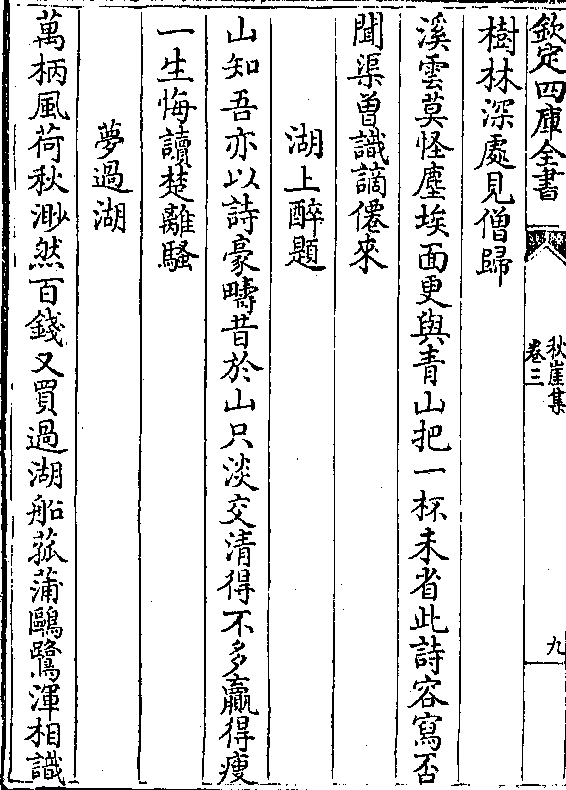 欽定四庫全書
秋崖集
卷三
九
樹林深處見僧歸
溪雲莫怪塵埃面更與青山把一杯未省此詩容寫否
聞渠曾識謫僊來
湖上醉題
山知吾亦以詩豪疇昔於山只淡交清得不多贏得瘦
一生悔讀楚離騷
夢過湖
萬柄風荷秋渺然百錢又買過湖船菰蒲鷗鷺渾相識